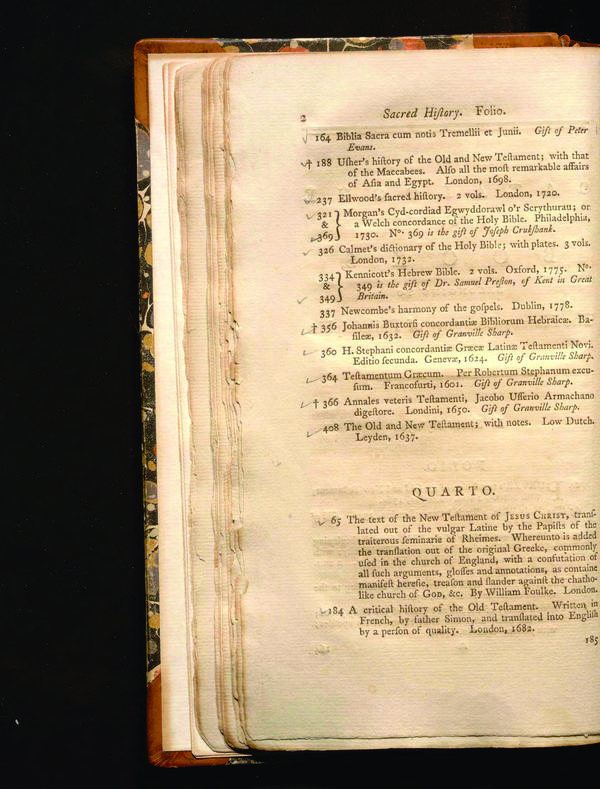 2 Sacred Hiſtory. Folio.
164 Biblia Sacra cum notis Tremellii et Junii. Gift of Peter
Evans.
† 188 Uſher's hiſtory of the Old and New Teſtament; with that
of the Maccabees. Alſo all the moſt remarkable affairs
of Aſia and Egypt. London, 1698.
237 Ellwood's ſacred hiſtory. 2 vols. London, 1720.
321 } Morgan's Cyd-cordiad Egwyddorawl o'r Scrythurau; or
& a Welch concordance of the Holy Bible. Philadelphia,
369 } 1730. Nº. 369 is the gift of Joſeph Crukſhank.
326 Calmet's dictionary of the Holy Bible; with plates. 3 vols.
London, 1732.
334 } Kennicott's Hebrew Bible. 2 vols. Oxford, 1775. Nº.
& 349 is the gift of Dr. Samuel Preſton, of Kent in Great
349 } Britain.
337 Newcombe's harmony of the goſpels. Dublin, 1778.
† 356 Johannis Buxtorfi concordantiæ Bibliorum Hebraicæ. Ba-
ſileæ, 1632. Gift of Granville Sharp.
360 H. Stephani concordantiæ Græcæ Latinæ Teſtamenti Novi.
Editio ſecunda. Genevæ, 1624. Gift of Granville Sharp.
364 Teſtamentum Græcum. Per Robertum Stephanum excu-
ſum. Francofurti, 1601. Gift of Granville Sharp.
† 366 Annales veteris Teſtamenti, Jacobo Uſſerio Armachano
digeſtore. Londini, 1650. Gift of Granville Sharp.
408 The Old and New Teſtament; with notes. Low Dutch.
Leyden, 1637.
QUARTO.
65 The text of the New Teſtament of JESUS CHRIST, tranſ-
lated out of the vulgar Latine by the Papiſts of the
traiterous ſeminarie of Rheimes. Whereunto is added
the tranſlation out of the original Greeke, commonly
uſed in the church of England, with a confutation of
all ſuch arguments, gloſſes and annotations, as containe
manifeſt hereſie, treaſon and ſlander againſt the catho-
like church of GOD, &c. By William Foulke. London.
184 A critical hiſtory of the Old Teſtament. Written in
French, by father Simon, and tranſlated into Engliſh
by a perſon of quality. London, 1682.
185